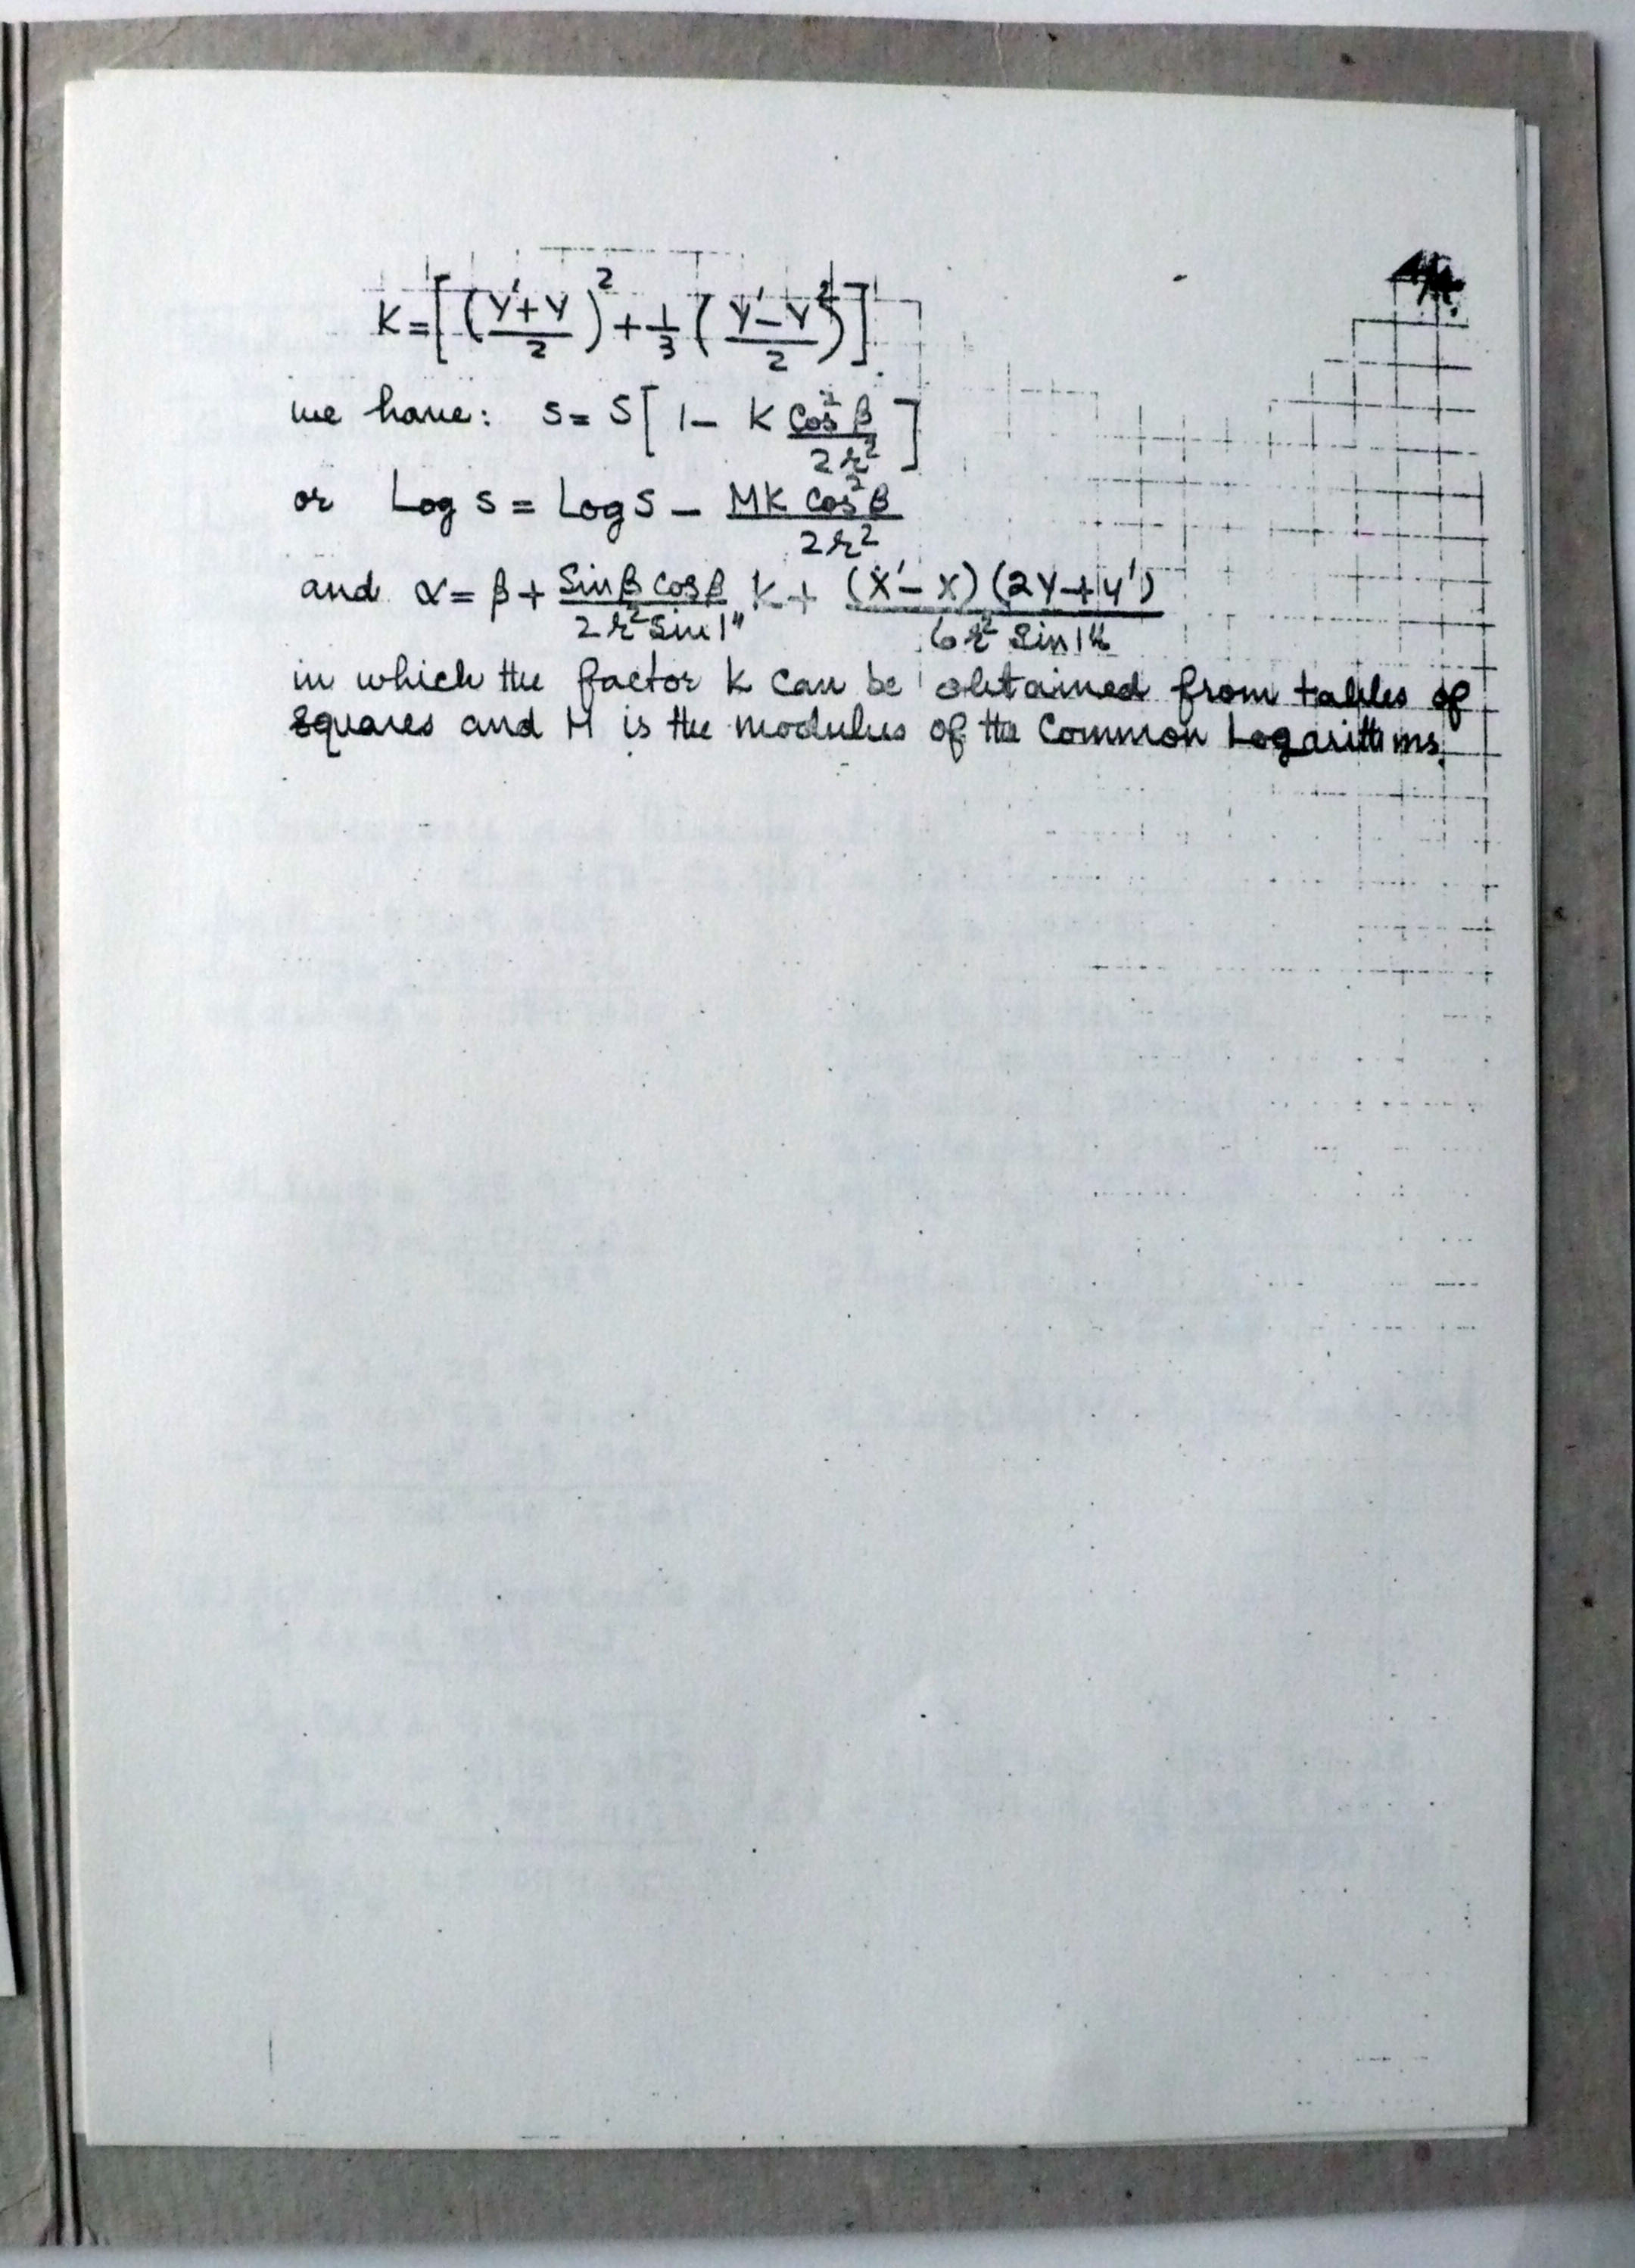 K = [ ( (Y'+Y)/2 )² + 1/3 ( (Y'−Y)/2 )² ]
we have: s = S [ 1 − K Cos²β / 2r² ]
or Log s = Log S − MK Cos²β / 2r²
and α = β + Sinβ Cosβ / 2r² Sin 1" K + (X'−X)(2Y+Y') / 6r² Sin 1"
in which the factor K can be obtained from tables of
Squares and M is the modulus of the Common Logarithms.